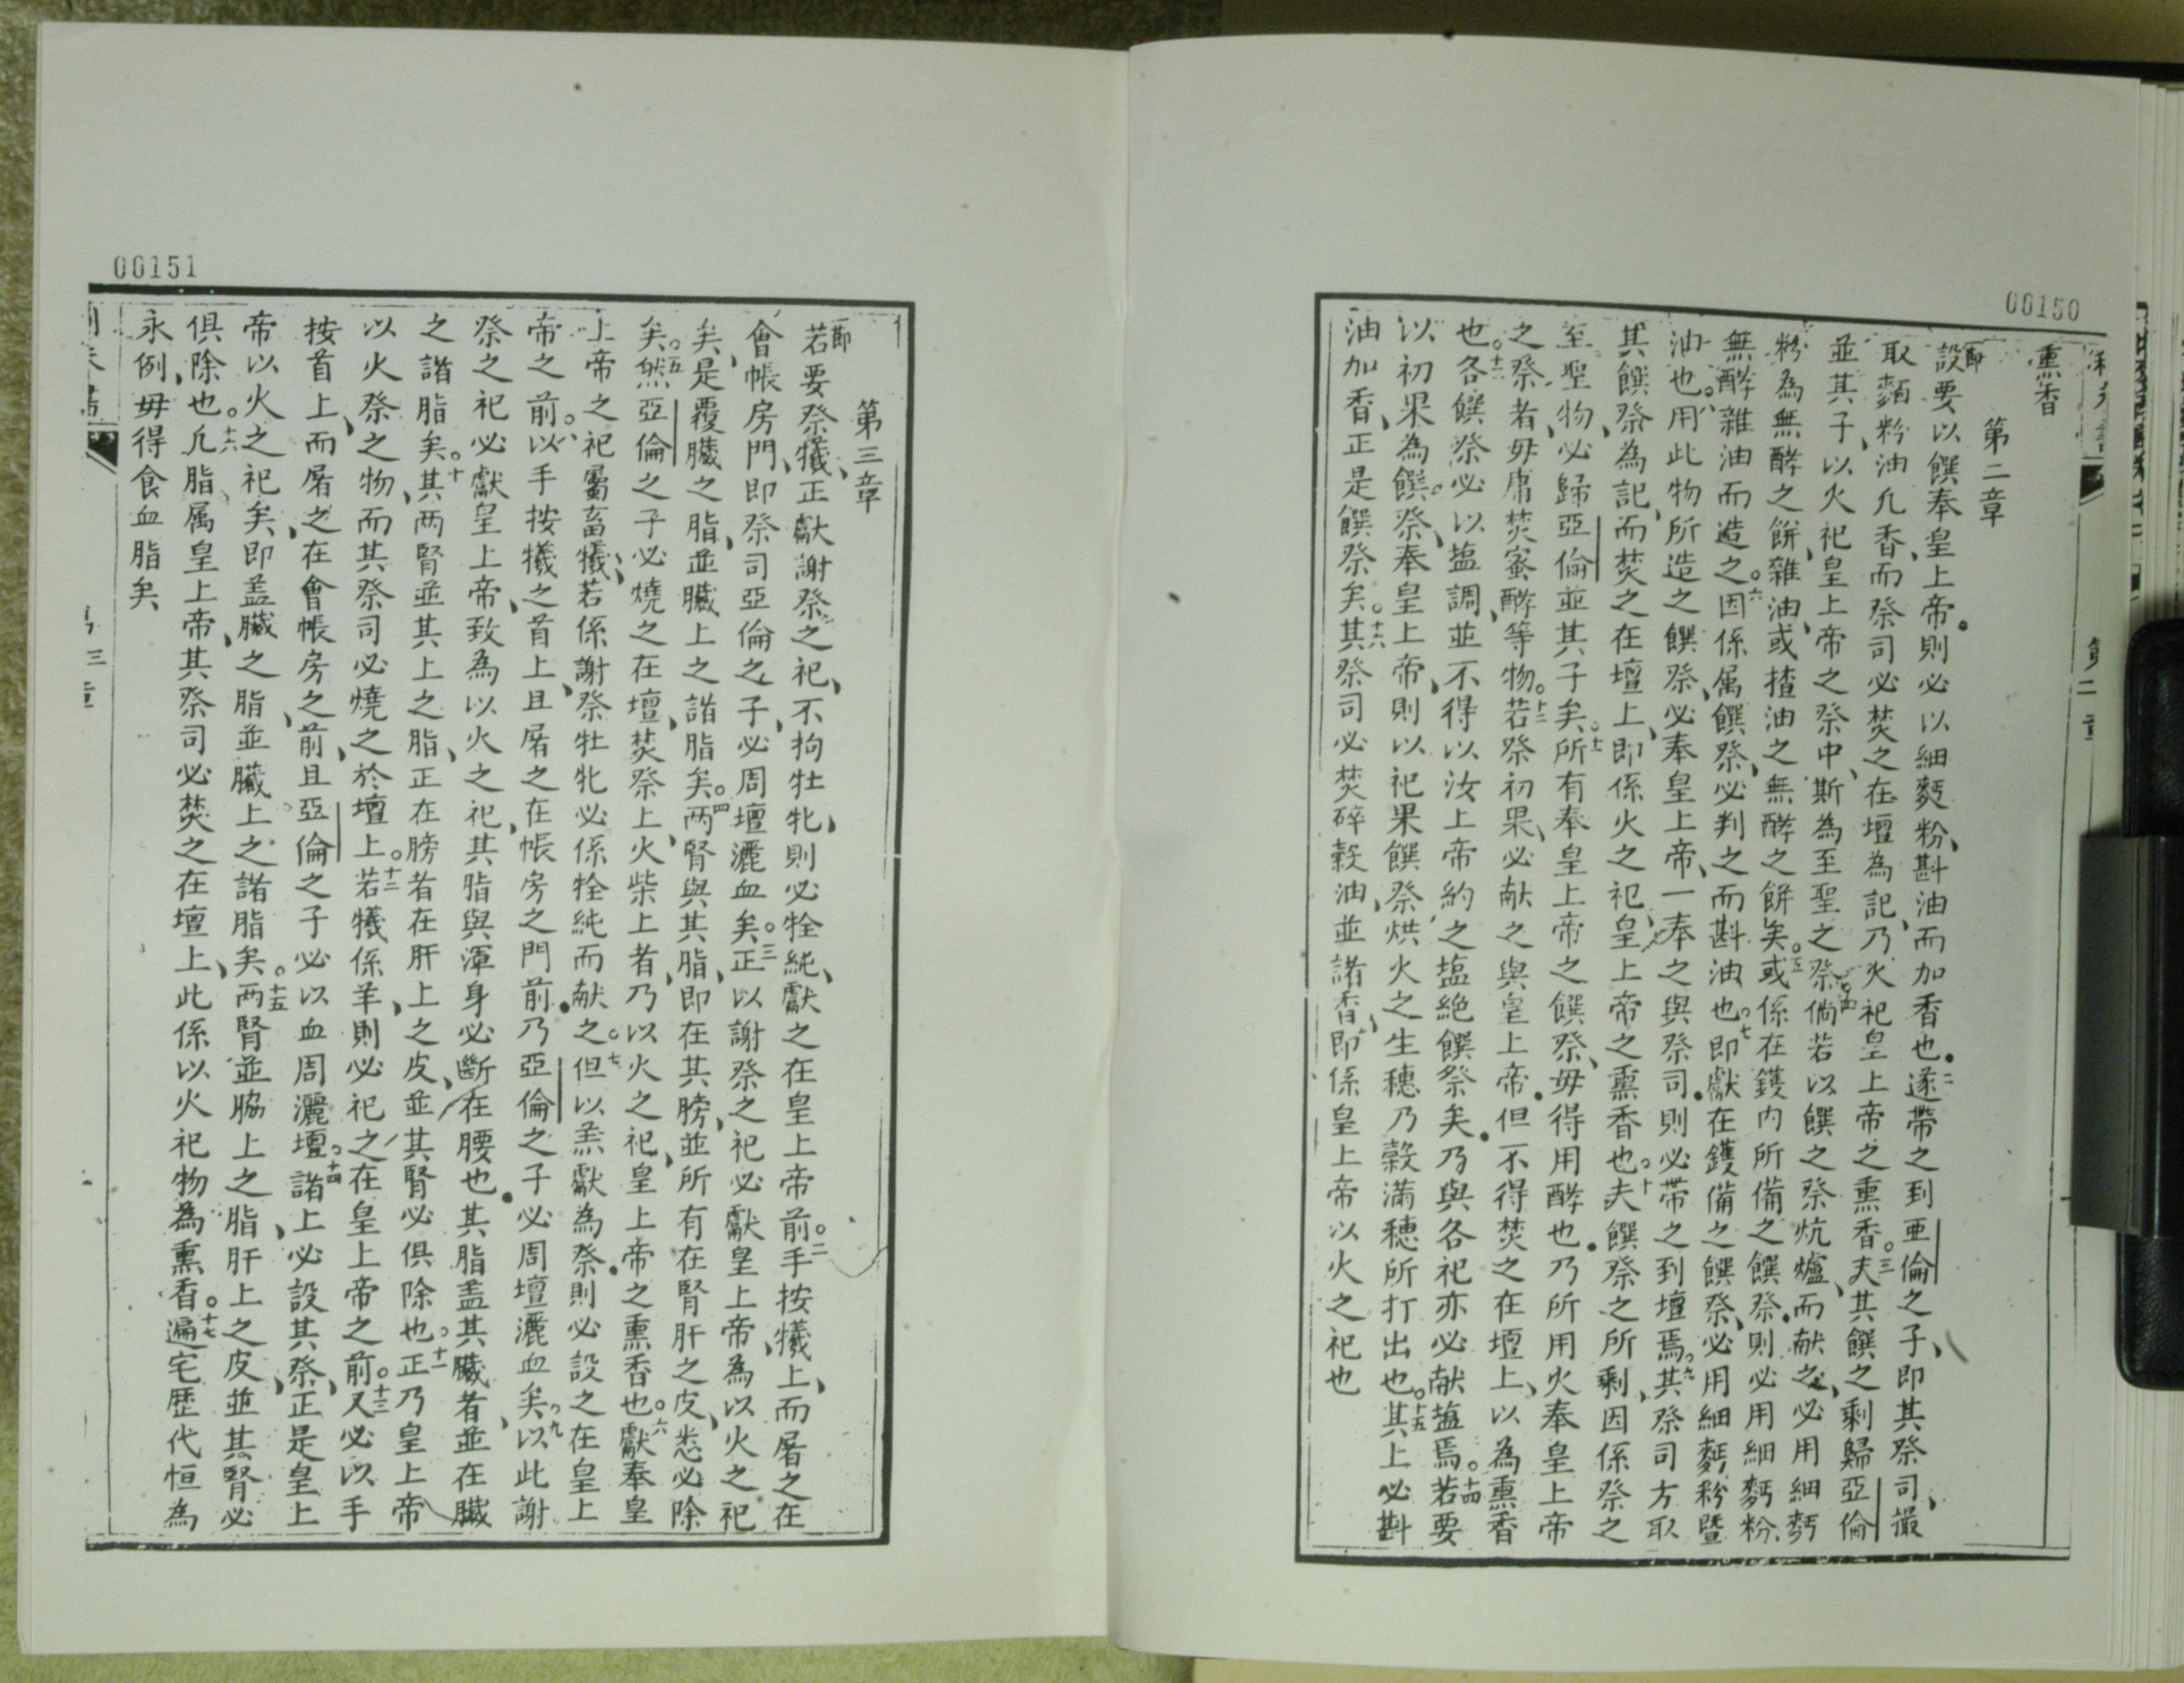 00150
第二章
熏香
第二章
即設要以饌奉皇上帝則必以細麪粉斟油而加香也二遂帶之到亜倫之子即其祭司撮
取麵粉油凡香而祭司必焚之在壇為記乃火祀皇上帝之熏香三夫其饌之剩歸亞倫
並其子以火祀皇上帝之祭中斯為至聖之祭四倘若以饌之祭炕爐而献之必用細麪
粉為無酵之餅雜油或搽油之無酵之餅矣五或係在鑊內所備之饌祭則必用細麪粉
無酵雜油而造之六因係属饌祭必判之而斟油也七即獻在鑊備之饌祭必用細麪粉暨
油也八用此物所造之饌祭必奉皇上帝一奉之與祭司則必帶之到壇焉九其祭司方取
其饌祭為記而焚之在壇上即係火之祀皇上帝之熏香也十夫饌祭之所剩因係祭之
至聖物必歸亞倫並其子矣十一所有奉皇上帝之饌祭毋得用酵也乃所用火奉皇上帝
之祭者毋庸焚蜜酵等物十二若祭初果必献之與皇上帝但不得焚之在壇上以為熏香
也十三各饌祭必以塩調並不得以汝上帝約之塩絕饌祭矣乃與各祀亦必献塩焉十四若要
以初果為饌祭奉皇上帝則以祀果饌祭烘火之生穗乃穀滿穗所打出也十五其上必斟
油加香正是饌祭矣十六其祭司必焚碎穀油並諸香即係皇上帝以火之祀也
00151
第三章
即若要祭犧正獻謝祭之祀不拘牡牝則必牷純獻之在皇上帝前二手按犧上而屠之在
會帳房門即祭司亞倫之子必周壇灑血矣三正以謝祭之祀必獻皇上帝為以火之祀
矣是覆臟之脂並臟上之諸脂矣四兩腎與其脂即在其膀並所有在腎肝之皮悉必除
矣五然亞倫之子必燒之在壇焚祭上火柴上者乃以火之祀皇上帝之熏香也六獻奉皇
上帝之祀屬畜犧若係謝祭牡牝必係牷純而献之七但以羔獻為祭則必設之在皇上
帝之前八以手按犧之首上且屠之在帳房之門前乃亞倫之子必周壇灑血矣九以此謝
祭之祀必獻皇上帝致為以火之祀其脂與渾身必斷在腰也其脂盖其臟者並在臟
之諸脂矣十其两腎並其上之脂正在膀者在肝上之皮並其腎必俱除也十一正乃皇上帝
以火祭之物而其祭司必燒之於壇上十二若犧係羊則必祀之在皇上帝之前十三又必以手
按首上而屠之在會帳房之前且亞倫之子必以血周灑壇十四諸上必設其祭正是皇上
帝以火之祀矣即盖臟之脂並臟上之諸脂矣十五两腎並脇上之脂肝上之皮並其腎必
俱除也十六凡脂属皇上帝其祭司必焚之在壇上此係以火祀物為熏香十七遍宅歷代恒為
永例毋得食血脂矣
三章